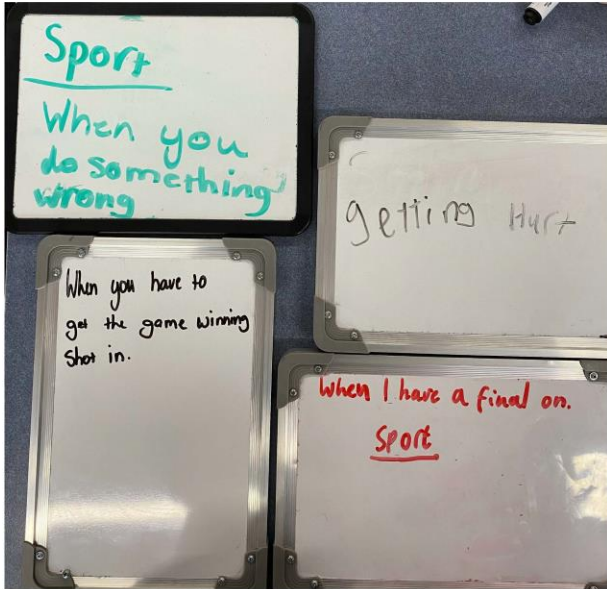 Sport
When you
do something
wrong
getting Hurt
When you have to
get the game winning
shot in.
When I have a final on.
Sport